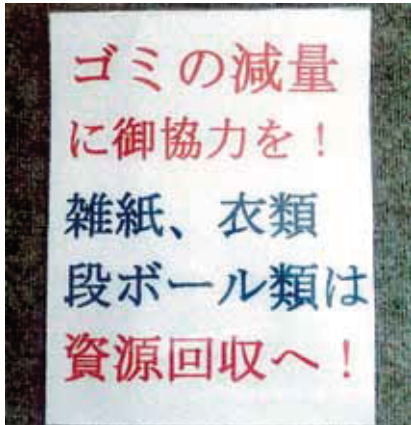 ゴミの減量
に御協力を！
雑紙、衣類
段ボール類は
資源回収へ！